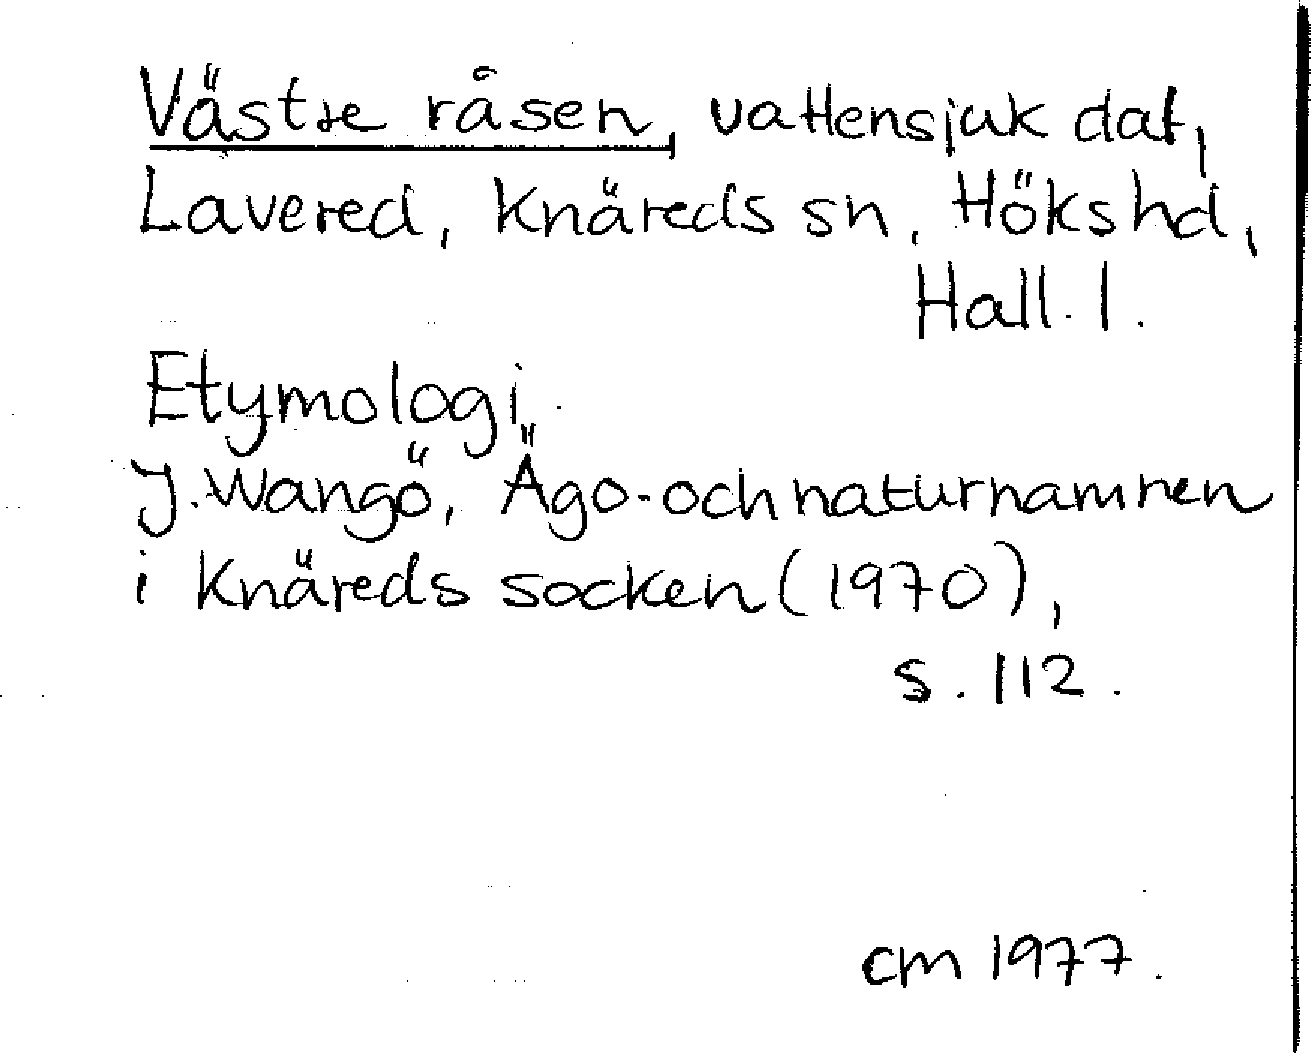 Västre råsen, vattensjuk dal,
Lavered, Knäreds sn, Höks hd,
Hall. l.
Etymologi
J. Wangö, Ägo- och naturnamnen
i Knäreds socken (1970),
s. 112.
cm 1977.